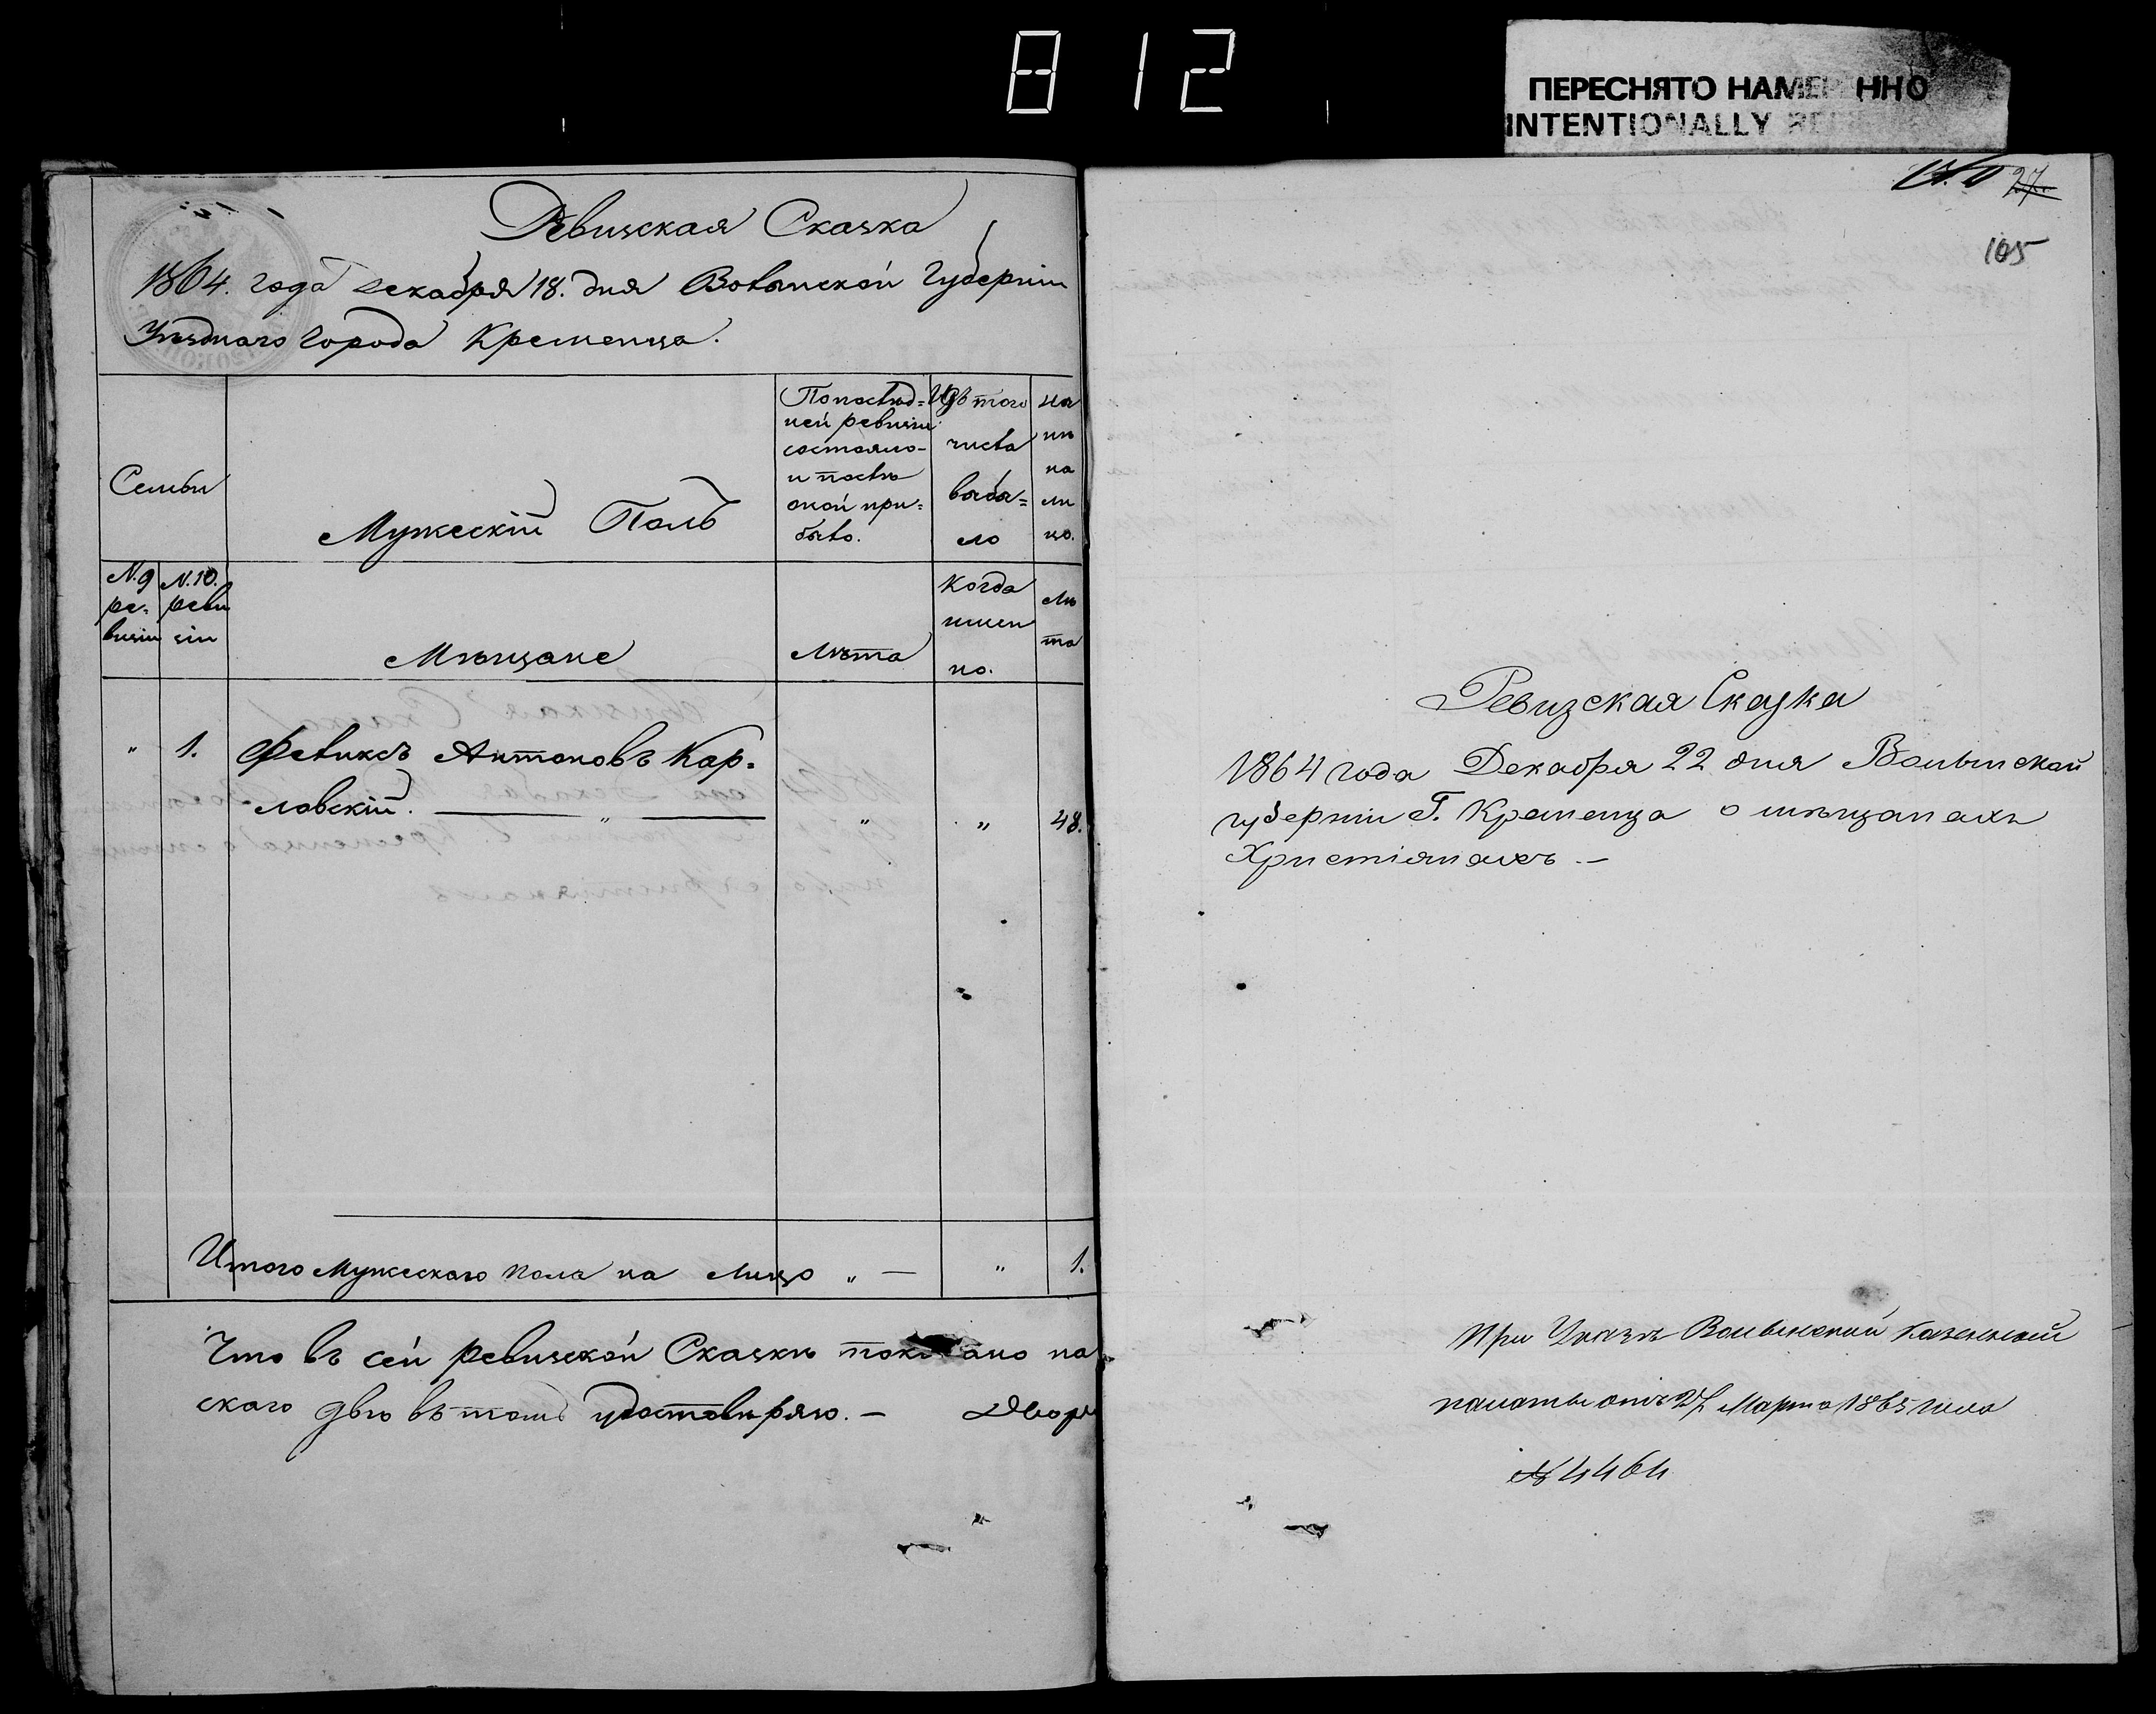 812
ПЕРЕСНЯТО НАМЕ ННО
INTENTIONALLY
Ревизская Сказка
1864. года Декабря 18. дня Волынской Губерніи
Уѣзднаго города Кременца.
Семьи
Мужескій Полъ
По послѣд=
ней ревизіи
состояло
и послѣ
оной при=
было.
Изъ того
числа
выбы=
ло
На
ли
цо.
N.9
ре-
визіи
N.10.
реви
зіи
Мѣщане
Лѣта
Когда
имен
но.
Лѣ
та
„ 1. Феликсъ Антоновъ Кар-
ловскій. „ „ „ 48.
Итого Мужескаго пола на лицо „ — „ 1.
Что въ сей ревизской Сказкѣ показано на
скаго въ томъ удостовѣряю. — Двор
27
105
Ревизская Сказка
1864 года Декабря 22 дня Волынской
губерніи Г. Кременца о мѣщанахъ
Христіянахъ. —
При Указѣ Волынской Казенной
палаты отъ Марта 1865 года
№ 4464